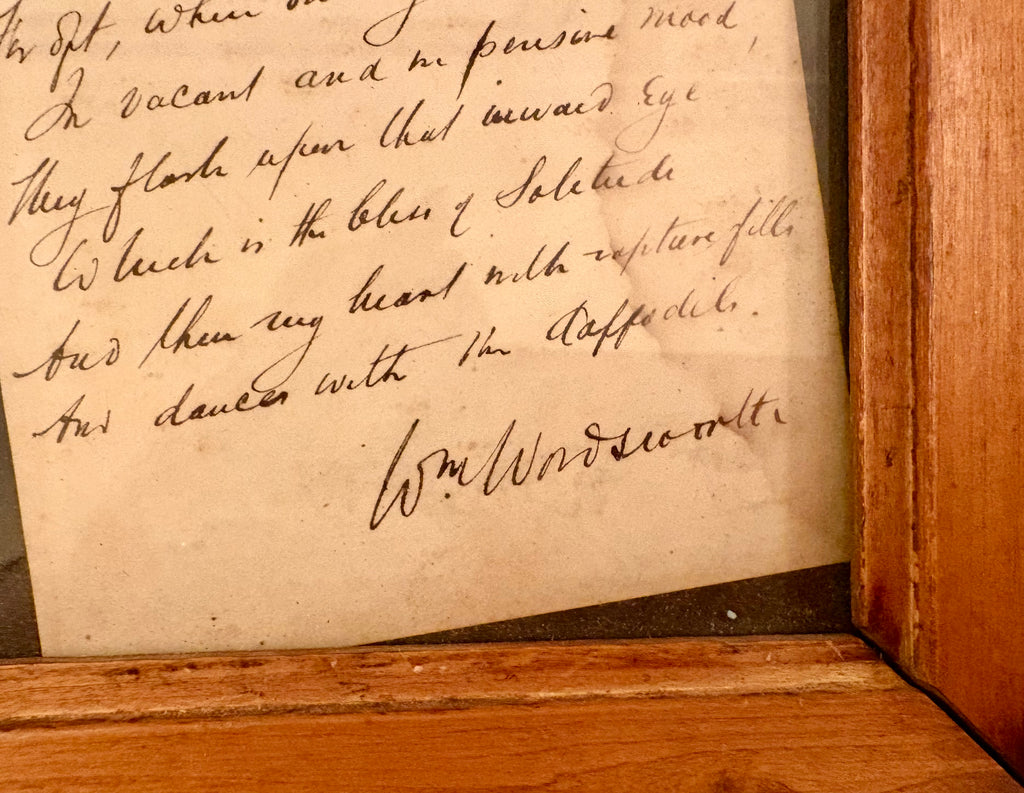 For oft, when on
In vacant and in pensive mood,
They flash upon that inward Eye
Which is the bliss of Solitude
And then my heart with rapture fills
And dances with the daffodils.
Wm. Wordsworth